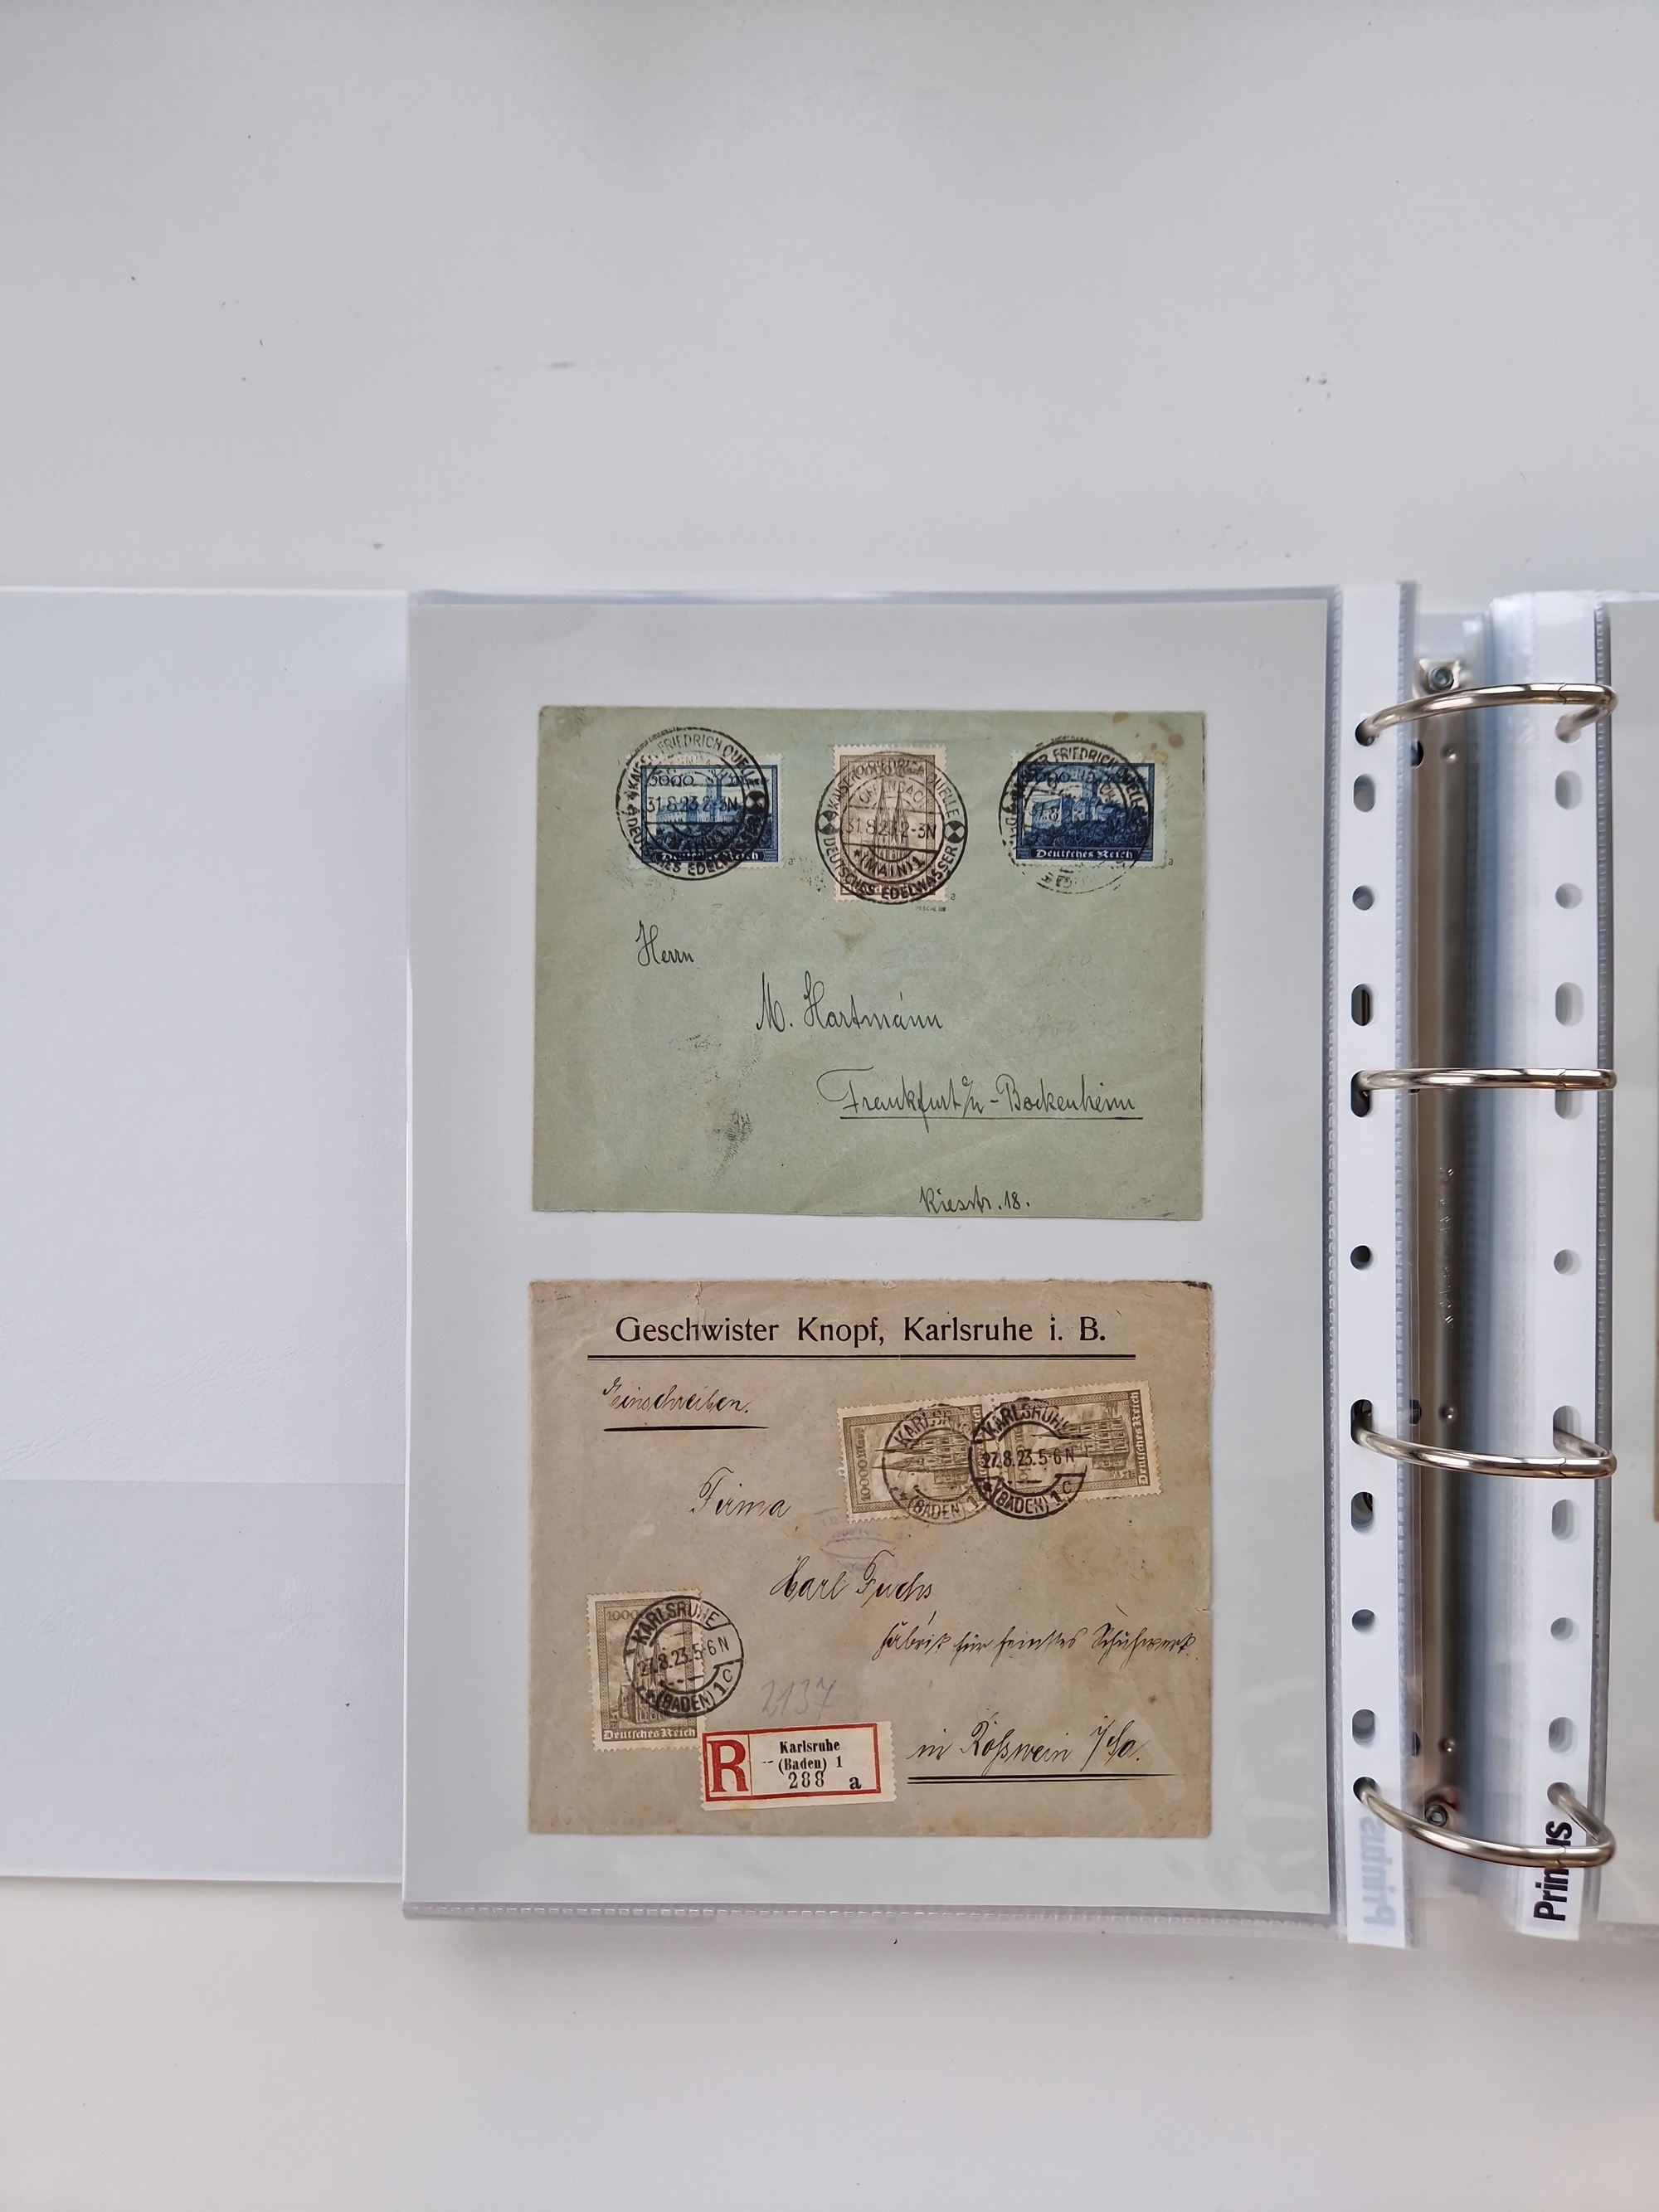 KAISER FRIEDRICH QUELLE
5000
31.8.23.2-3N
DEUTSCHES EDELWASSER
Deutsches Reich
a
KAISER FRIEDRICH QUELLE
OFFENBACH
31.8.23.2-3N
*(MAIN)1
DEUTSCHES EDELWASSER
a
KAISER FRIEDRICH QUELLE
Deutsches Reich
a
Herrn
M. Hartmann
Frankfurt a/M - Bockenheim
Kiesstr. 18.
Geschwister Knopf, Karlsruhe i. B.
Einschreiben.
10000 Mark
KARLSRUHE
*(BADEN)1
KARLSRUHE
27.8.23.5-6N
*(BADEN)1C
Deutsches Reich
Firma
Karl Fuchs
Fabrik für feinstes Schuhwerk.
1000
KARLSRUHE
27.8.23.5-6N
*(BADEN)1C
Deutsches Reich
2137
R
Karlsruhe
(Baden) 1
288 a
in Roßwein i/Sa.
Prin us